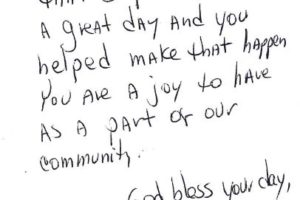 A great day And you
helped make that happen
You Are A joy to hAve
As A part of our
community.
God bless your day,